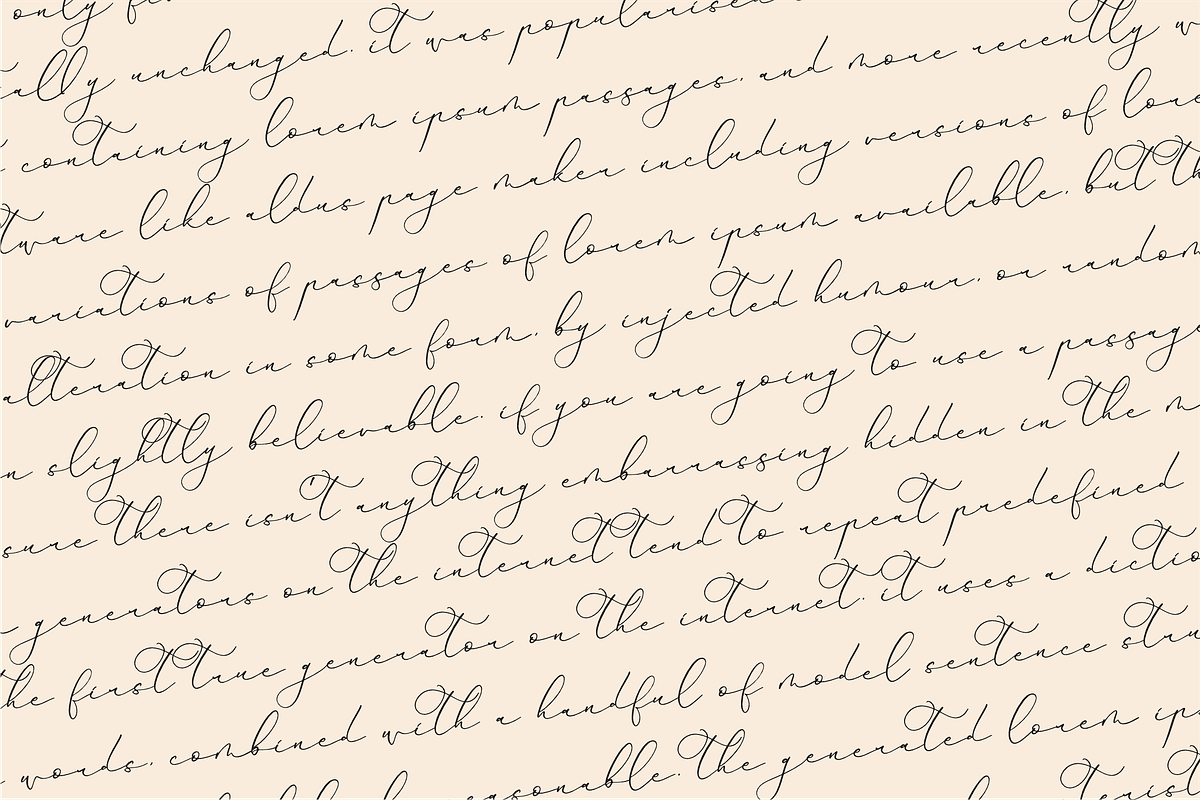 only
ally unchanged. it was popularised
containing lorem ipsum passages. and more recently
tware like aldus page maker including versions of lore
variations of passages of lorem ipsum available. but th
alteration in some form. by injected humour. or random
n slightly believable. if you are going to use a passage
sure there isn't anything embarrassing hidden in the m
generators on the internet tend to repeat predefined
the first true generator on the internet. it uses a dictio
words. combined with a handful of model sentence stru
easonable. the generated lorem ip